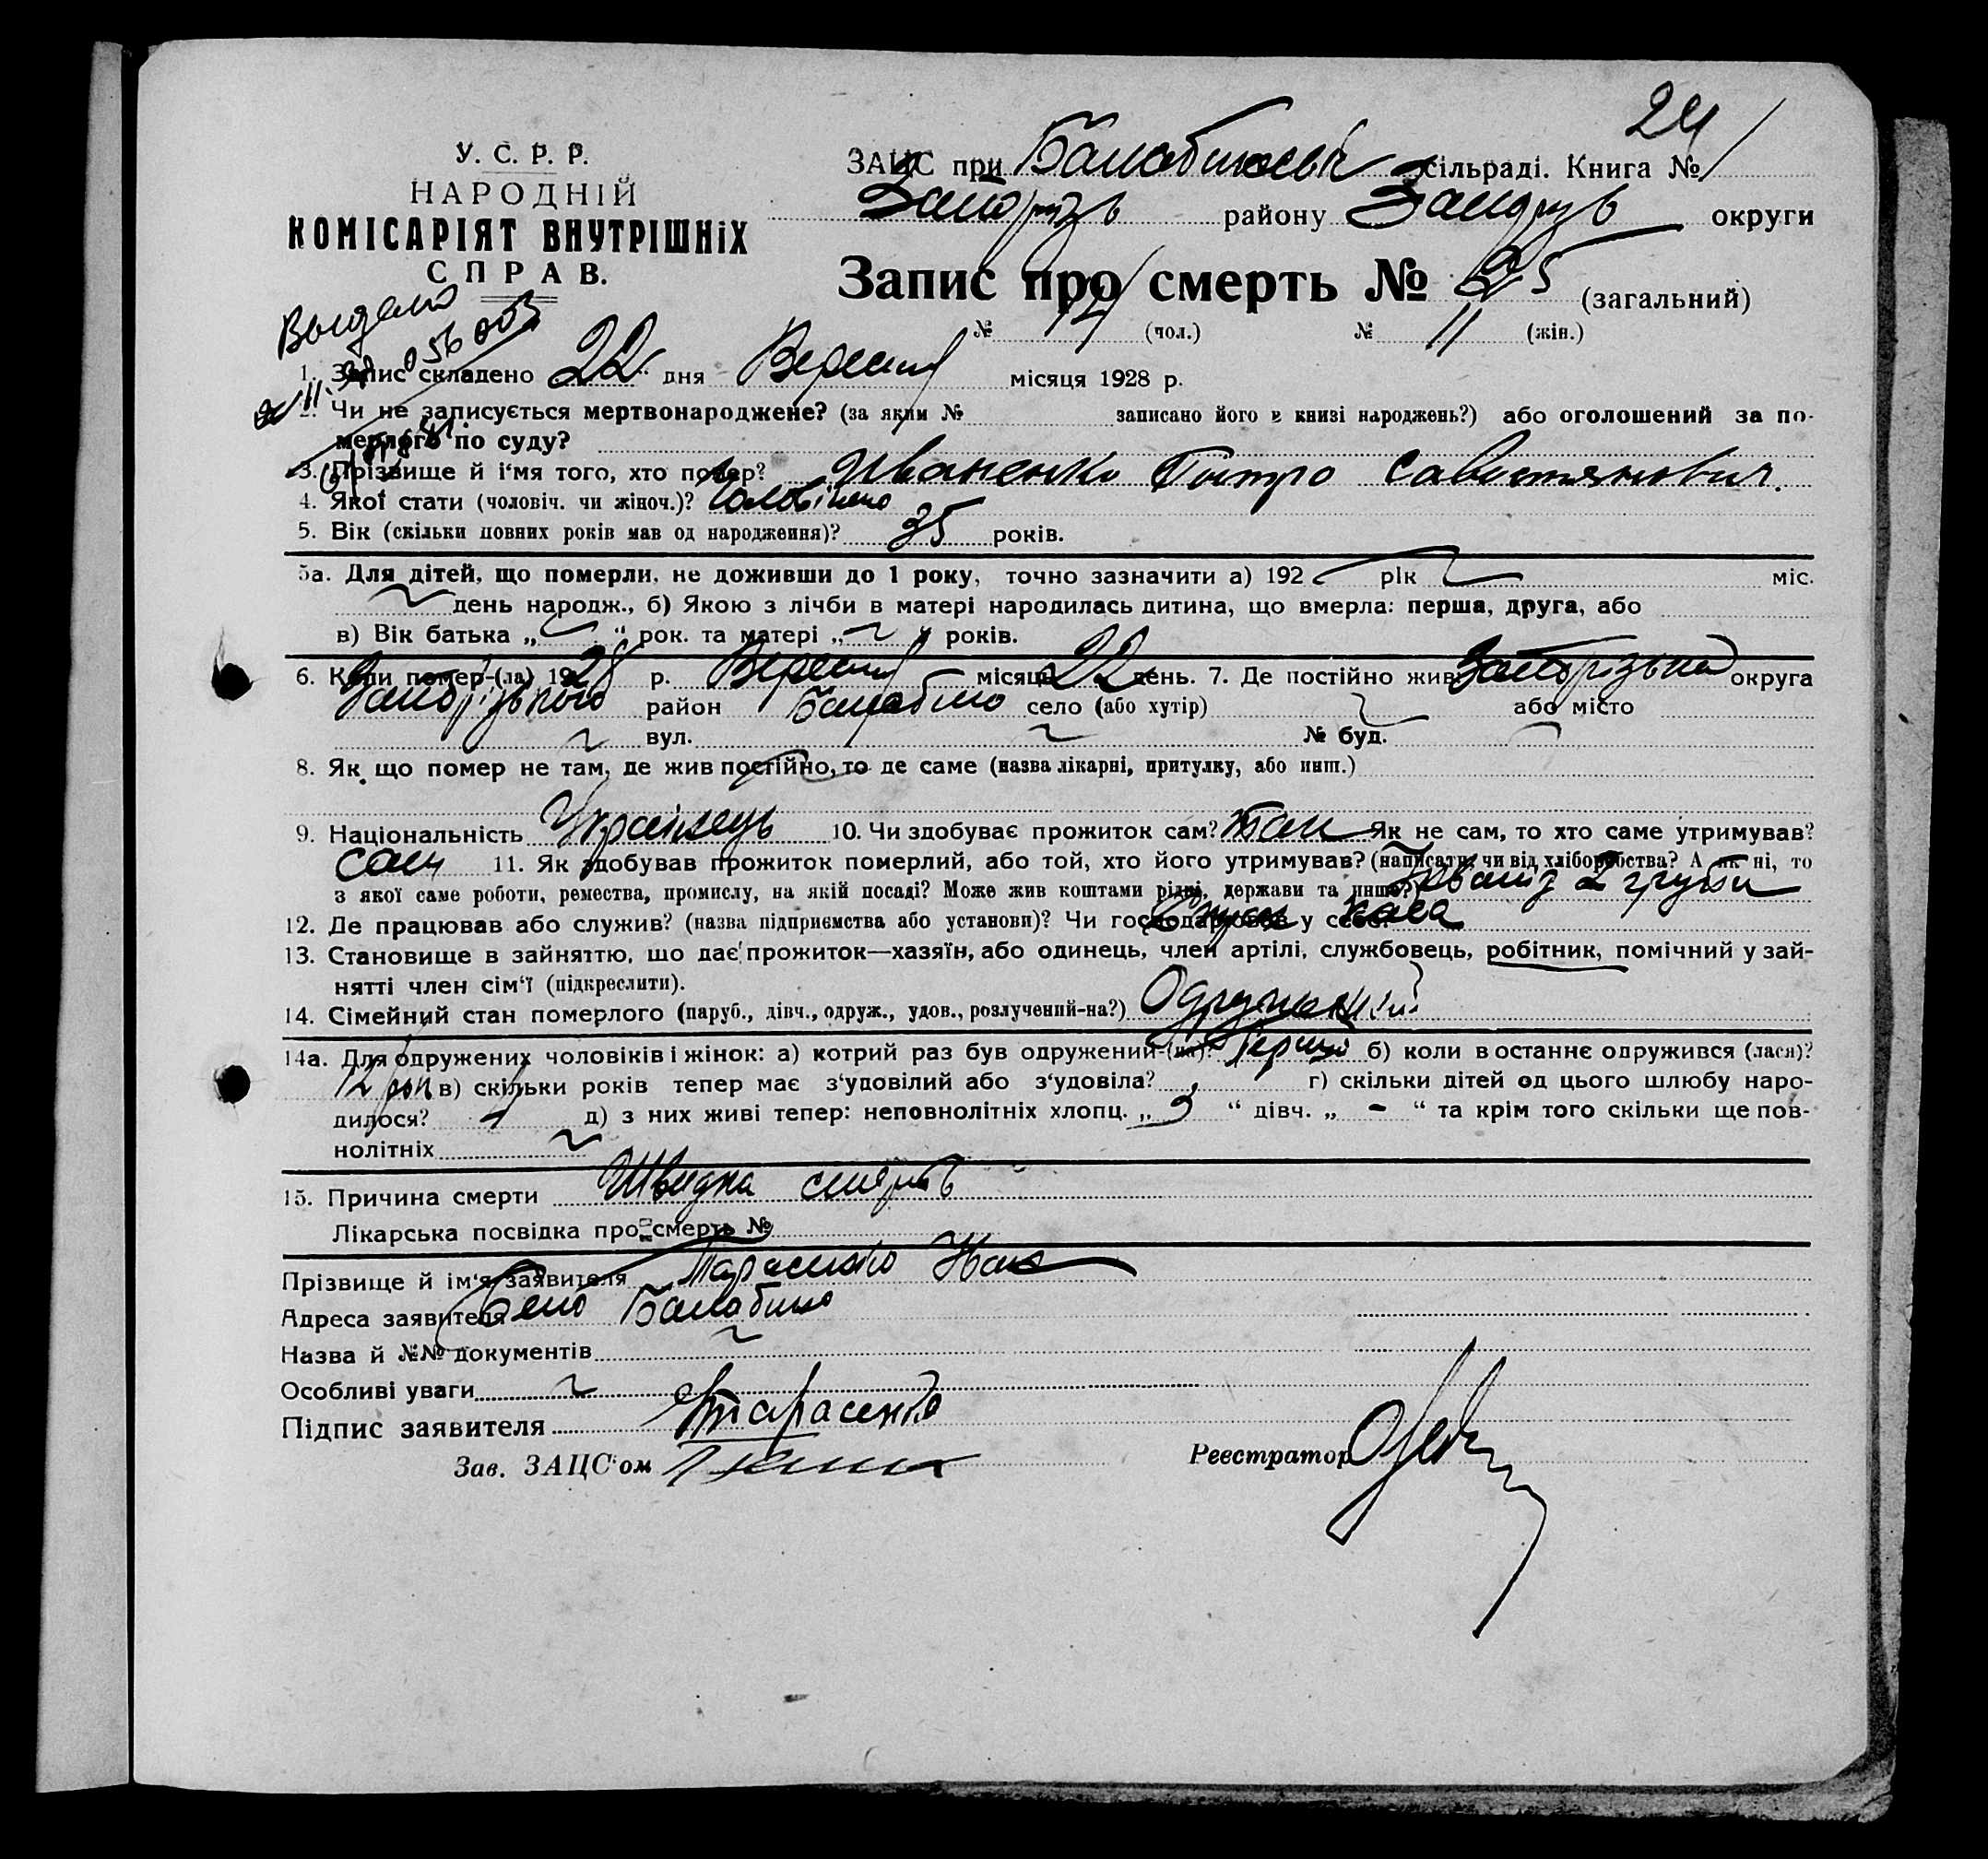 24
У. С. Р. Р.
НАРОДНІЙ
КОМІСАРІЯТ ВНУТРІШНіХ
СПРАВ.
ЗАЦС при Балабинські сільраді. Книга № 1
Запорізь району Запорізь округи
Запис про смерть № 25 (загальний)
№ 14 (чол.) № 11 (жін.)
Выдано
1. Запис складено 22 дня Вересня місяця 1928 р.
2. Чи не записується мертвонароджене? (за яким № записано його в книзі народжень?) або оголошений за по-
мерлого по суду?
3. Прізвище й і'мя того, хто помер? Иваненко Петро Савостянович.
4. Якої стати (чоловіч. чи жіноч.)? Чоловічено
5. Вік (скільки повних років мав од народження)? 35 років.
5а. Для дітей, що померли, не доживши до 1 року, точно зазначити а) 192 рік міс.
день народж., б) Якою з лічби в матері народилась дитина, що вмерла: перша, друга, або
в) Вік батька „ “ рок. та матері „ “ років.
6. Коли помер-(ла) 1928 р. Вересня місяць 22 день. 7. Де постійно жив Запорізька округа
Запорізького район Балабино село (або хутір) або місто
вул. № буд.
8. Як що помер не там, де жив постійно, то де саме (назва лікарні, притулку, або инш.)
9. Національність Українець 10. Чи здобуває прожиток сам? Так Як не сам, то хто саме утримував?
сам 11. Як здобував прожиток померлий, або той, хто його утримував? (написати, чи від хліборобства? А як ні, то
з якої саме роботи, ремества, промислу, на якій посаді? Може жив коштами рідні, держави та инше?) Інвалід 2 групи
12. Де працював або служив? (назва підприємства або установи)? Чи господарював у себе? Страх каса
13. Становище в зайняттю, що дає прожиток—хазяїн, або одинець, член артілі, службовець, робітник, помічний у зай-
нятті член сім'ї (підкреслити).
14. Сімейний стан померлого (паруб., дівч., одруж., удов., розлучений-на?) Одружений
14а. Для одружених чоловіків і жінок: а) котрий раз був одружений-(на)? Перший б) коли востаннє одружився (лася)?
12 рок в) скільки років тепер має з'уповілий або з'удовіла? г) скільки дітей од цього шлюбу наро-
дилося? д) з них живі тепер: неповнолітніх хлопц. „ 3 “ дівч. „ - “ та крім того скільки ще пов-
нолітніх
15. Причина смерти Швидка смерть
Лікарська посвідка про смерть №
Прізвище й ім'я заявителя Тарасенко Иван
Адреса заявителя Село Балабино
Назва й №№ документів
Особливі уваги
Підпис заявителя Тарасенко
Зав. ЗАЦС'ом
Реестратор